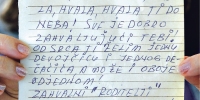 ZA, HVALA, HVALA TI DO
NEBA! SVE JE DOBRO
ZAHVALJUJUĆI TEBI!
OD SRCA TI ŽELIM JEDNU
DEVOJČICU I JEDNOG DE-
ČAČIĆA A MOŽE I OBOJE
ODJEDNOM!
ZAHVALNI "RODITELJI"